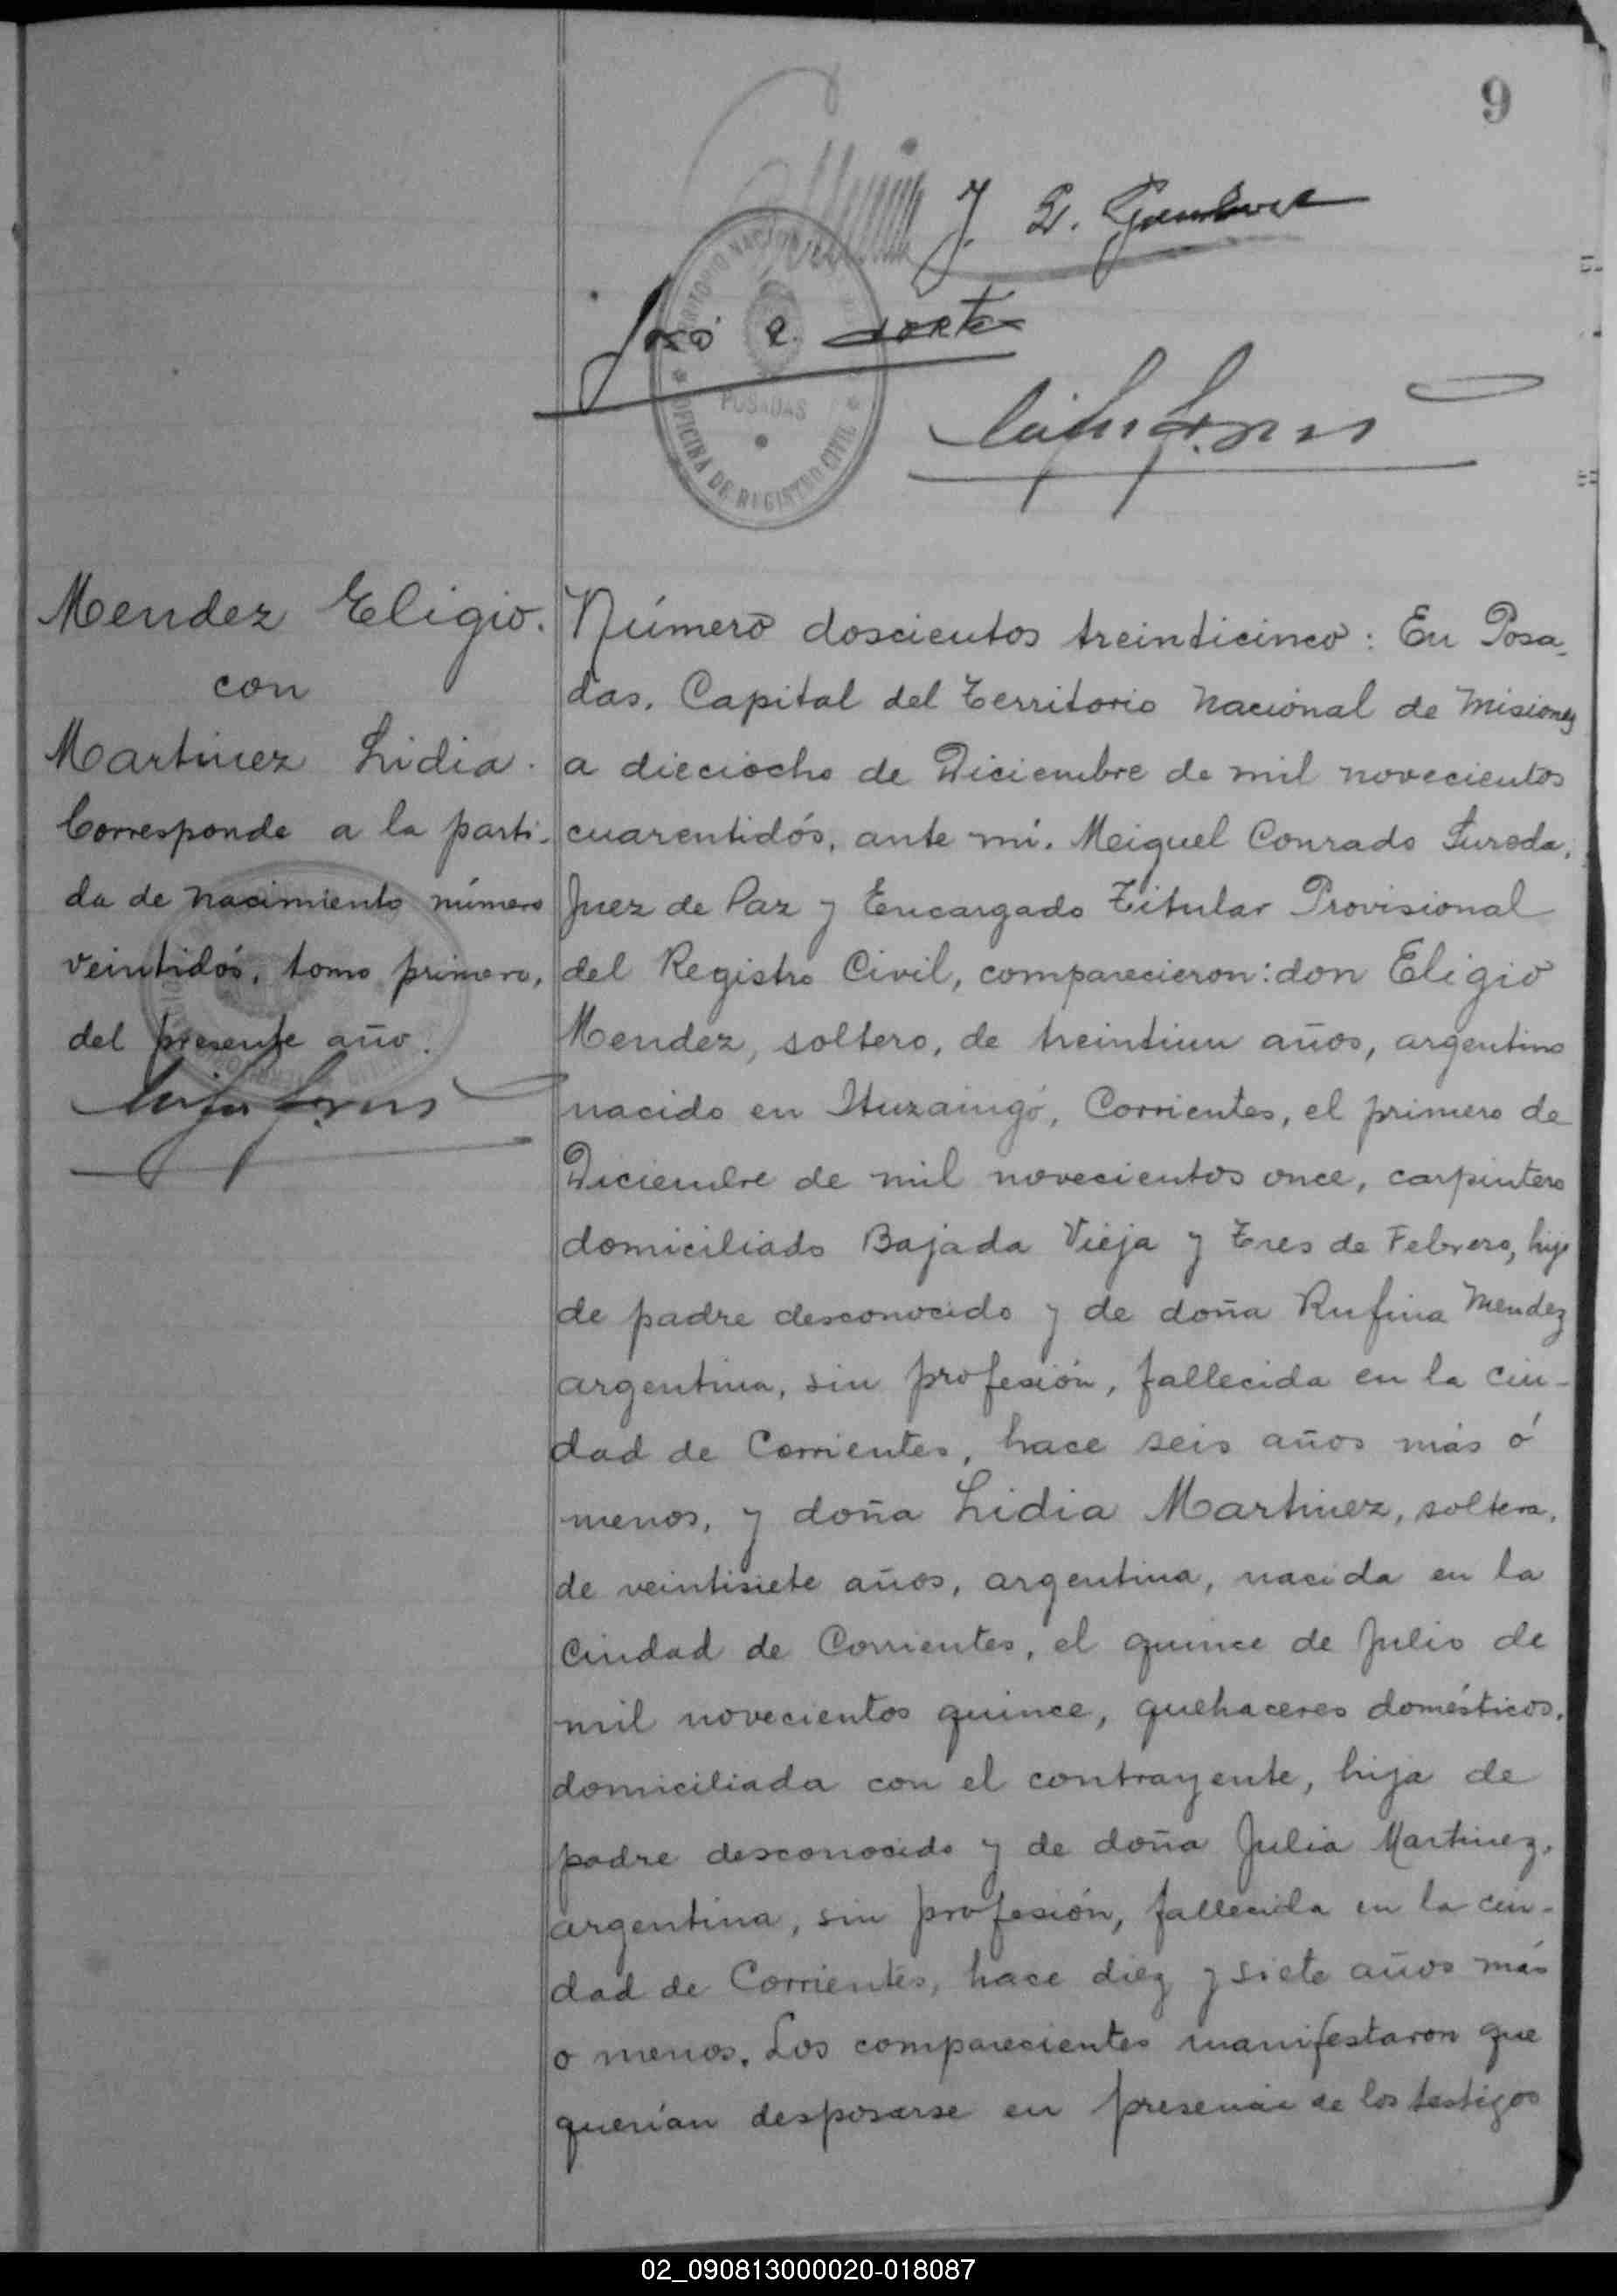 9
J.
José
TERRITORIO NACIONAL
POSADAS
OFICINA DE REGISTRO CIVIL
Mendez Eligio.
con
Martinez Lidia.
Corresponde a la parti-
da de nacimiento número
veintidós, tomo primero,
del presente año.
Número doscientos treinticinco: En Posa-
das, Capital del Territorio Nacional de Misiones
a dieciocho de Diciembre de mil novecientos
cuarentidós, ante mí, Meiguel Conrado Sureda,
Juez de Paz y Encargado Titular Provisional
del Registro Civil, comparecieron: don Eligio
Mendez, soltero, de treintiun años, argentino
nacido en Ituzaingó, Corrientes, el primero de
Diciembre de mil novecientos once, carpintero
domiciliado Bajada Vieja y Tres de Febrero, hijo
de padre desconocido y de doña Rufina Mendez
argentina, sin profesión, fallecida en la ciu-
dad de Corrientes, hace seis años más ó
menos, y doña Lidia Martinez, soltera,
de veintisiete años, argentina, nacida en la
Ciudad de Corrientes, el quince de Julio de
mil novecientos quince, quehaceres domésticos,
domiciliada con el contrayente, hija de
padre desconocido y de doña Julia Martinez,
argentina, sin profesión, fallecida en la ciu-
dad de Corrientes, hace diez y siete años más
o menos. Los comparecientes manifestaron que
querían desposarse en presencia de los testigos
02_090813000020-018087